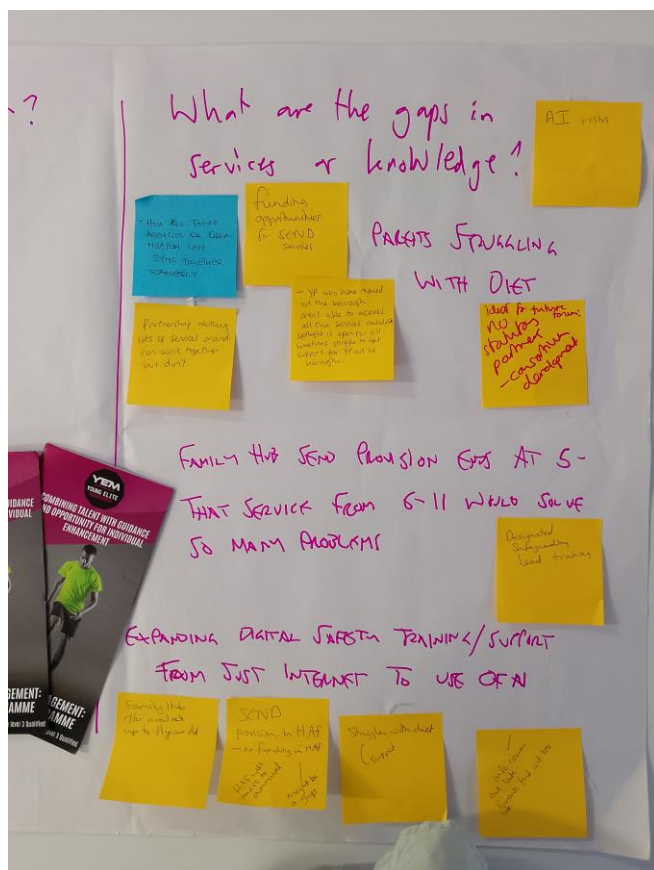 ?
What are the gaps in
services or knowledge?
AI risks
- How all these
agencies or
can
sync together
funding
opportunities
for SEND
PARENTS STRUGGLING
WITH DIET
Partnership working
lots of services around
can work together
but don't.
- YP who have moved
out the borough
arent able to access
all the services
spotlight is open for all
sometimes struggle to get
support for YP out of
borough.
Ideas for future
forum:
no
statutory
partner
- consortium
development
FAMILY HUB SEND PROVISION ENDS AT 5-
THAT SERVICE FROM 6-11 WOULD SOLVE
SO MANY PROBLEMS
Designated
Safeguarding
Lead training
EXPANDING DIGITAL SAFETY TRAINING/SUPPORT
FROM JUST INTERNET TO USE OF AI
Family Hubs
up to 11 year old
SEND
provision in HAF
- no funding in HAF
HAF
move to
might be
a gap
Struggles with diet
(support
info comes
out late
parents find out too
YEM
YOUNG ELITE
COMBINING TALENT WITH GUIDANCE
AND OPPORTUNITY FOR INDIVIDUAL
ENHANCEMENT
GUIDANCE
INDIVIDUAL
AGEMENT:
RAMME
Level 3 Qualified